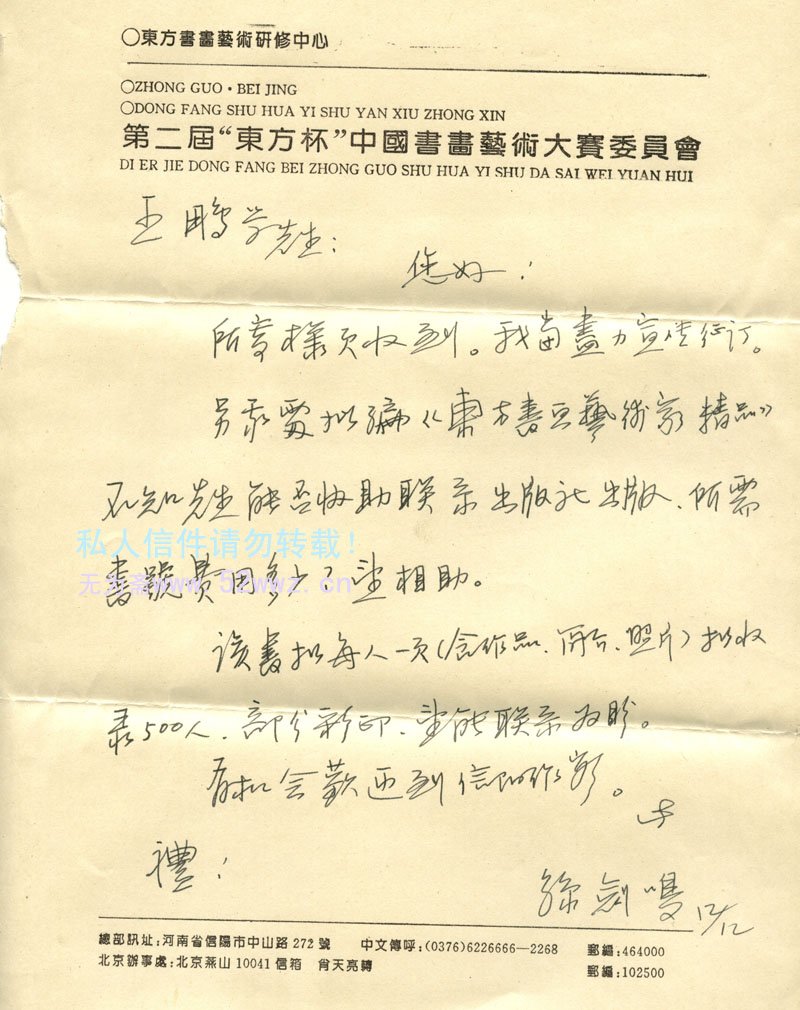 ○東方書畫藝術研修中心
○ZHONG GUO·BEI JING
○DONG FANG SHU HUA YI SHU YAN XIU ZHONG XIN
第二屆“東方杯”中國書畫藝術大賽委員會
DI ER JIE DONG FANG BEI ZHONG GUO SHU HUA YI SHU DA SAI WEI YUAN HUI
王鵬学先生：
您好！
所寄樣页收到。我当盡力宣传征订。
另我處拟编《東方書画藝術家精品》
不知先生能否协助联系出版社出版、所需
私人信件请勿转载！
書號費用多少？望相助。
www.52wwz.cn
该書拟每人一页（含作品、简介、照片）拟收
录500人、部分彩印、望能联系为盼。
有机会歡迎到信阳作客。
此
禮！
孫劍鳴 12/12
總部訊址：河南省信陽市中山路272號 中文傳呼：(0376)6226666—2268 郵編：464000
北京辦事處：北京燕山10041信箱 肖天亮轉 郵編：102500